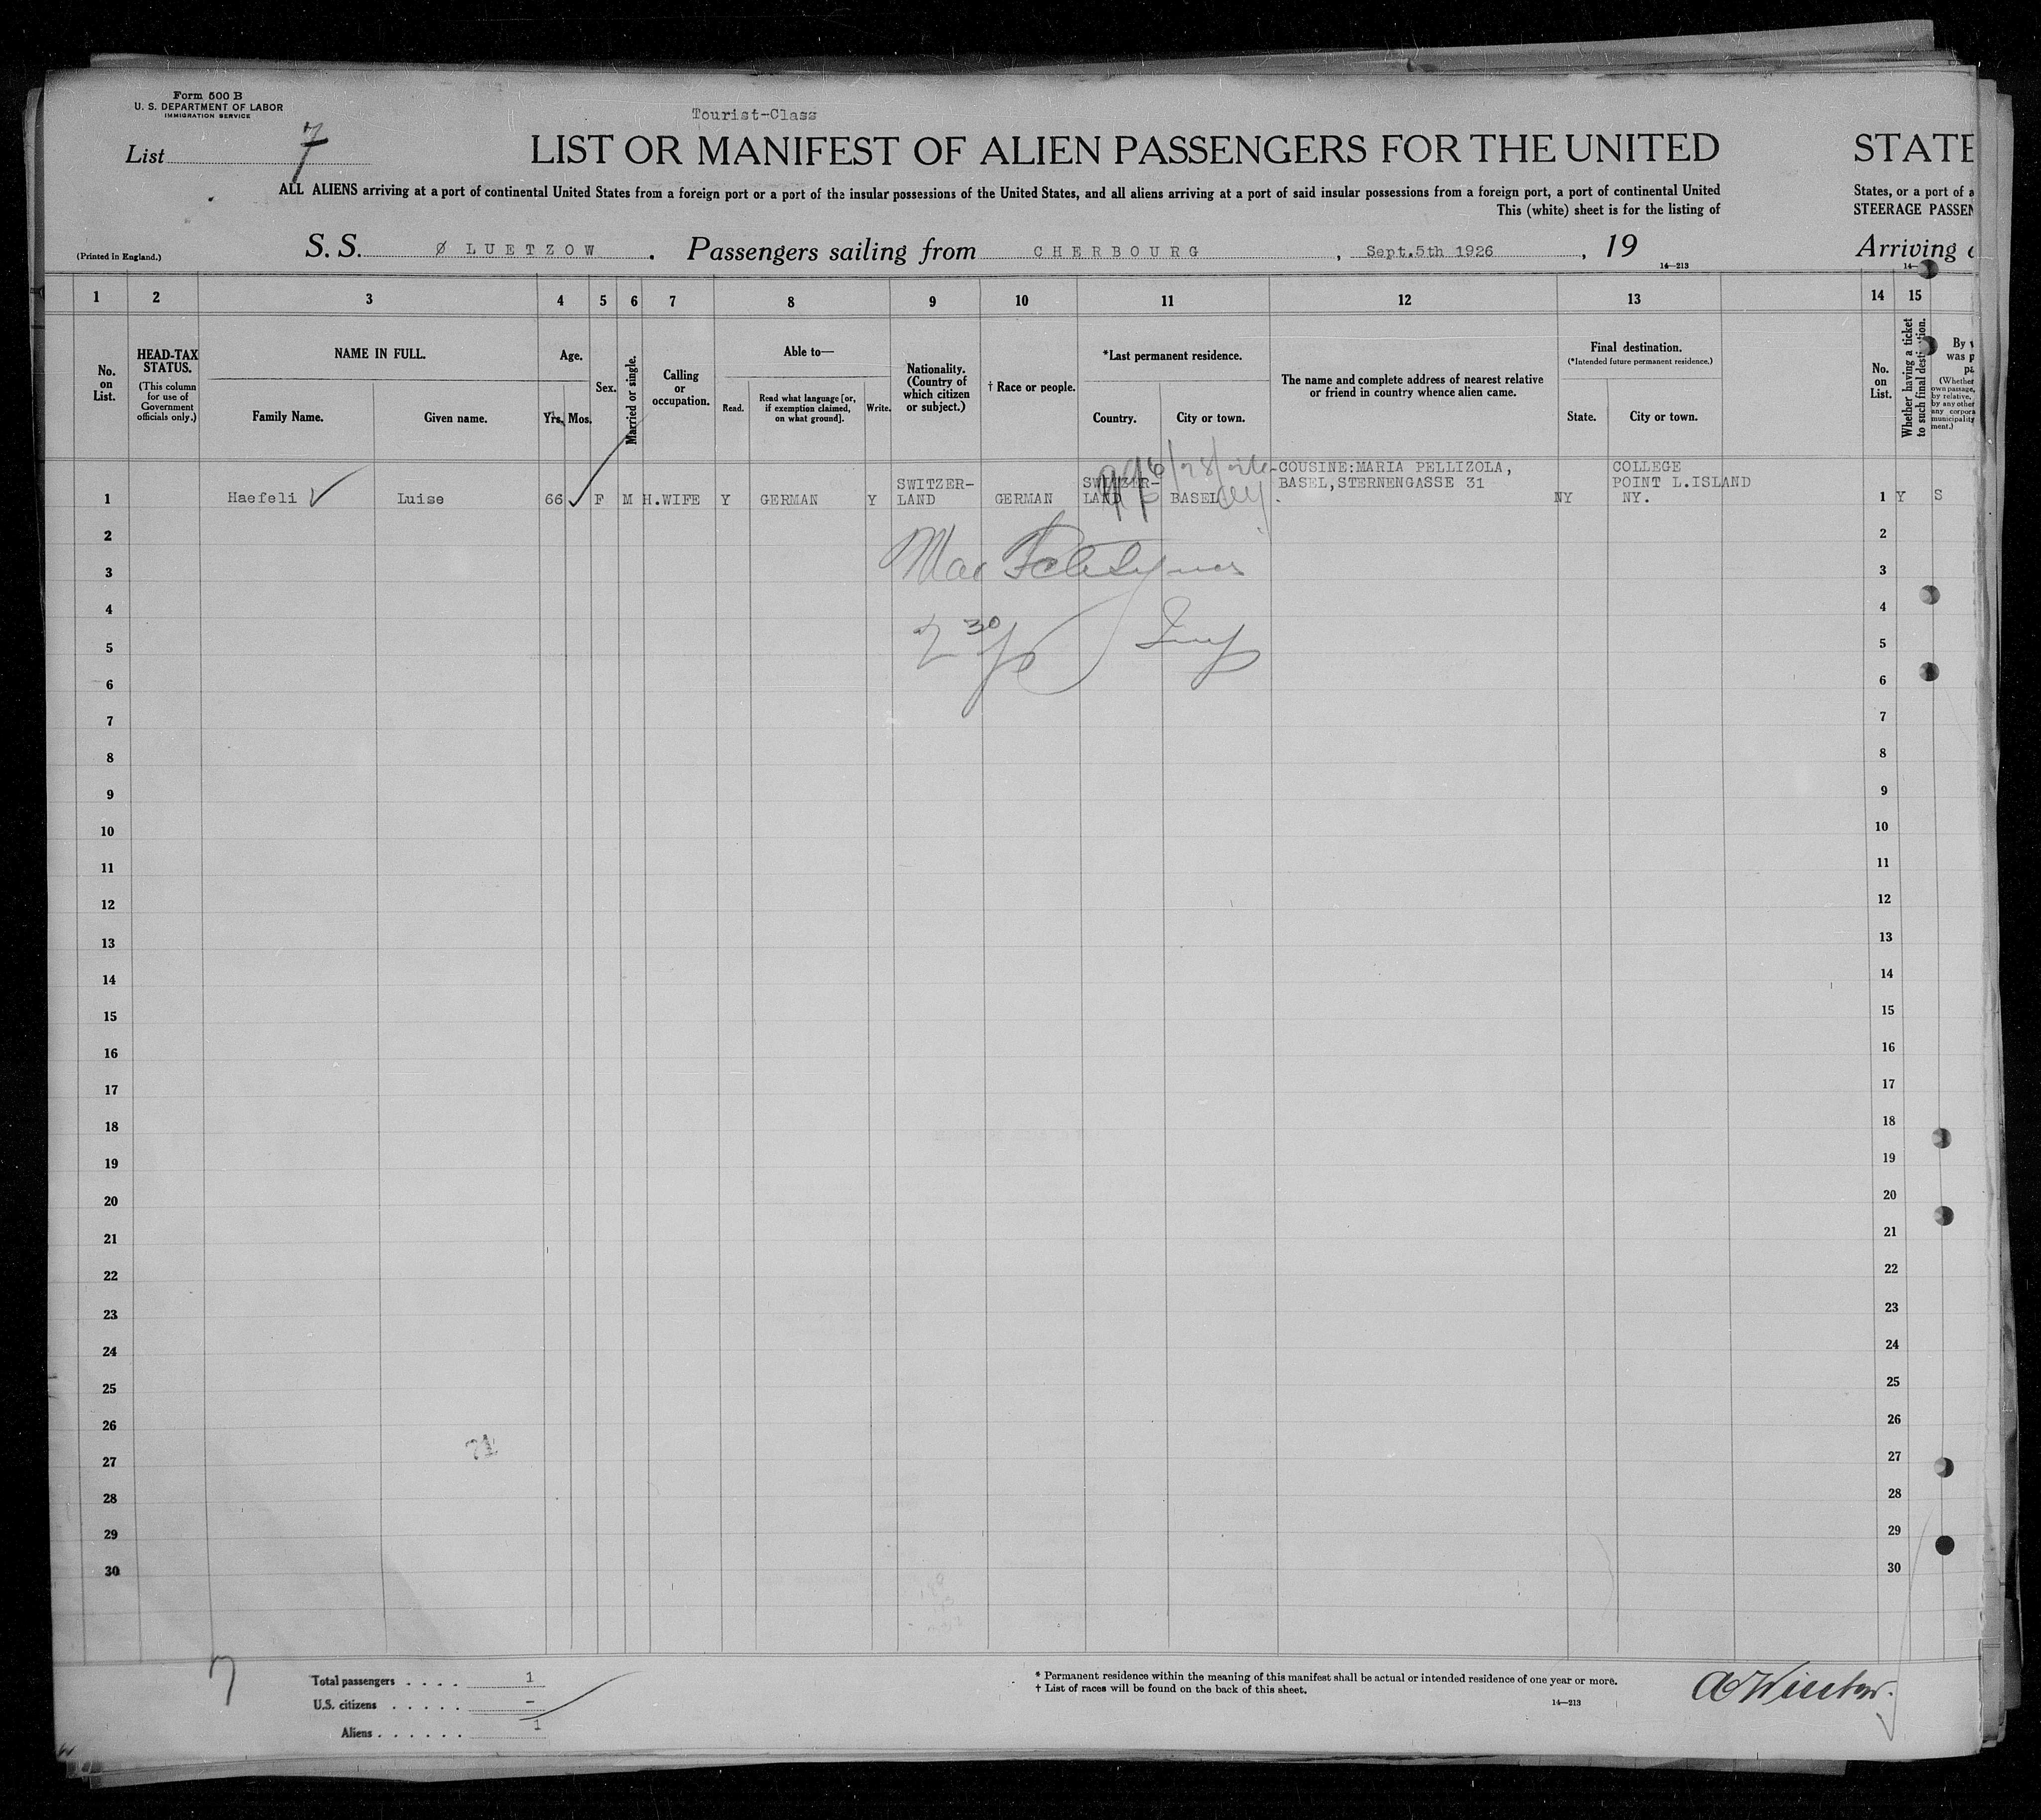 Form 500 B
U. S. DEPARTMENT OF LABOR
IMMIGRATION SERVICE
Tourist-Class
List 7
LIST OR MANIFEST OF ALIEN PASSENGERS FOR THE UNITED STATE
ALL ALIENS arriving at a port of continental United States from a foreign port or a port of the insular possessions of the United States, and all aliens arriving at a port of said insular possessions from a foreign port, a port of continental United States, or a port of
This (white) sheet is for the listing of STEERAGE PASSEN
(Printed in England.)
S. S. Ø LUETZOW. Passengers sailing from CHERBOURG, Sept.5th 1926, 19 Arriving
14—213
1 2 3 4 5 6 7 8 9 10 11 12 13 14 15
No. on List.
HEAD-TAX STATUS.
(This column for use of Government officials only.)
NAME IN FULL.
Family Name. Given name.
Age.
Yrs. Mos.
Sex.
Married or single.
Calling or occupation.
Able to—
Read. Read what language [or, if exemption claimed, on what ground]. Write.
Nationality. (Country of which citizen or subject.)
† Race or people.
*Last permanent residence.
Country. City or town.
The name and complete address of nearest relative or friend in country whence alien came.
Final destination.
(*Intended future permanent residence.)
State. City or town.
No. on List.
Whether having a ticket to such final destination.
By
was p
(Whether
own passage,
by relative,
by any other
any corpora
municipality
ment.)
1 Haefeli Luise 66 F M H.WIFE Y GERMAN Y SWITZER-LAND GERMAN SWITZER-LAND BASEL COUSINE:MARIA PELLIZOLA, BASEL,STERNENGASSE 31 NY COLLEGE POINT L.ISLAND NY. 1 Y S
2 2
3 3
4 4
2 30 p
5 5
6 6
7 7
8 8
9 9
10 10
11 11
12 12
13 13
14 14
15 15
16 16
17 17
18 18
19 19
20 20
21 21
22 22
23 23
24 24
25 25
26 26
27 27
28 28
29 29
30 30
7
Total passengers . . . . 1
U.S. citizens . . . . . –
Aliens . . . . . . 1
* Permanent residence within the meaning of this manifest shall be actual or intended residence of one year or more.
† List of races will be found on the back of this sheet.
14—213